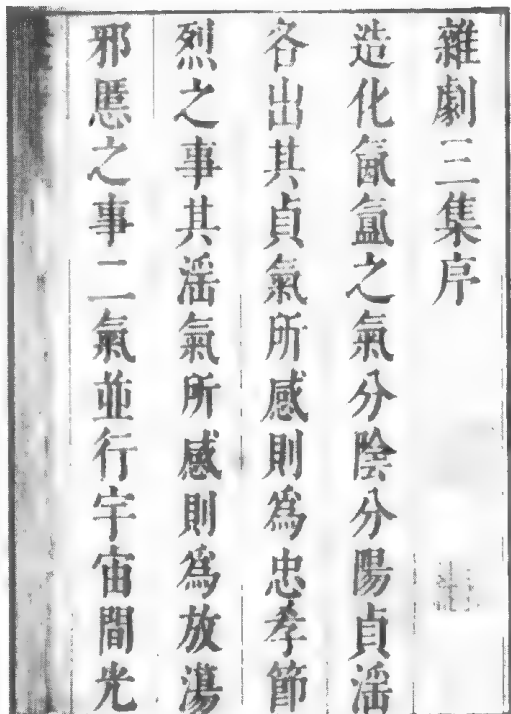 雜劇三集序
造化氤氳之氣分陰分陽貞滛
各出其貞氣所感則為忠孝節
烈之事其滛氣所感則為放蕩
邪慝之事二氣並行宇宙間光